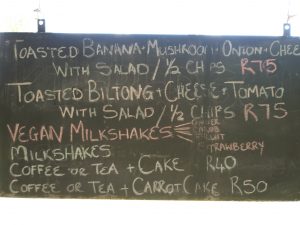 TOASTED BANANA + MUSHROOM + ONION + CHEE
WITH SALAD / 1/2 CHIPS R75
TOASTED BILTONG + CHEESE + TOMATO
WITH SALAD / 1/2 CHIPS R75
VEGAN MILKSHAKES
STRAWBERRY
MILKSHAKES
COFFEE OR TEA + CAKE R40
COFFEE OR TEA + CARROT CAKE R50